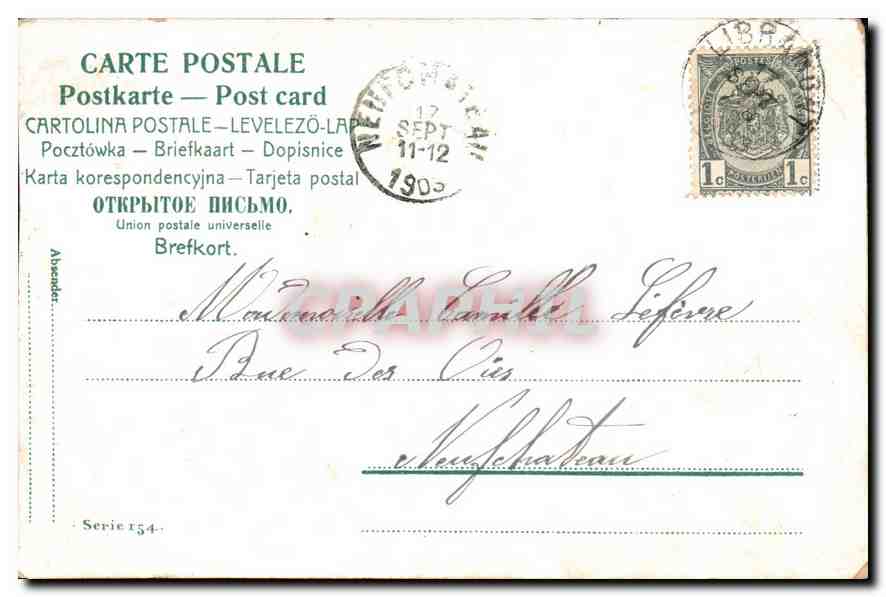 CARTE POSTALE
Postkarte — Post card
CARTOLINA POSTALE – LEVELEZÖ-LAP
Pocztówka – Briefkaart – Dopisnice
Karta korespondencyjna – Tarjeta postal
ОТКРЫТОЕ ПИСЬМО.
Union postale universelle
Brefkort.
Absender
NEUFCHATEAU
17
SEPT
11-12
1905
LIBRAMONT
POSTES
1c 1c
POSTERIJEN
CPARAMA
Mademoiselle Camille Lefèvre
Rue des Oies
Neufchateau
Serie 154.